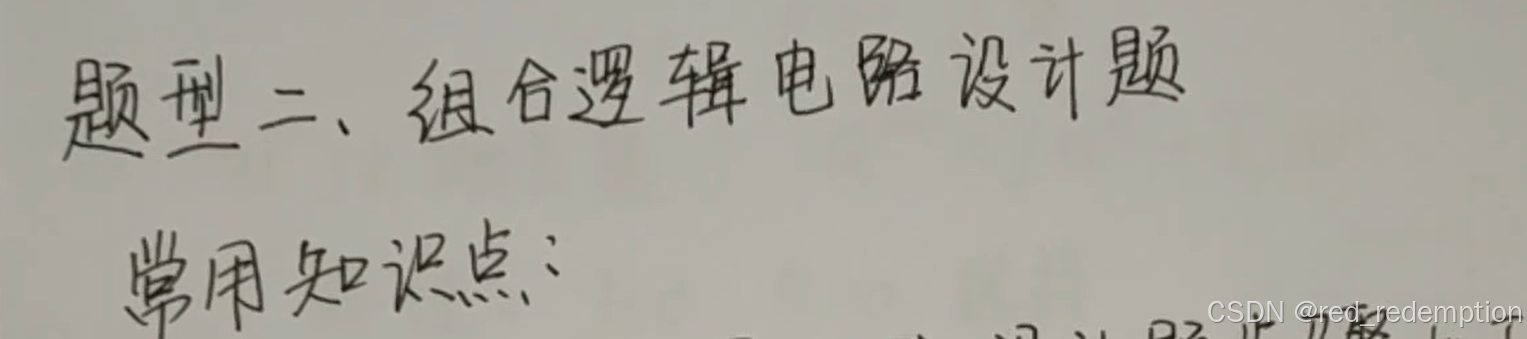 题型二、组合逻辑电路设计题
常用知识点:
CSDN @red_redemption